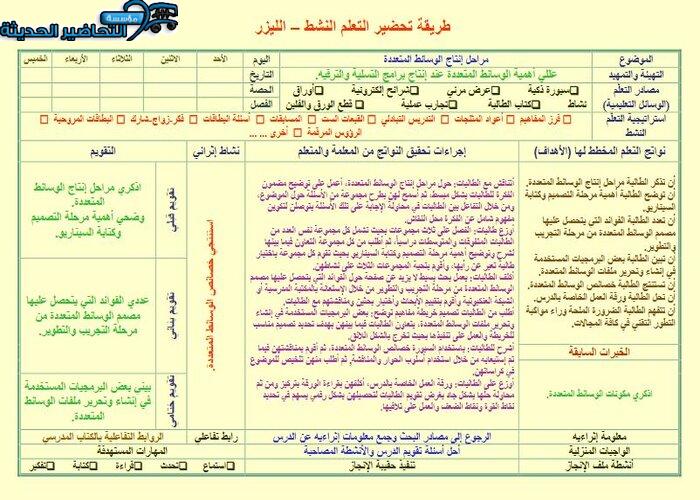 مؤسسة
التحاضير الحديثة
طريقة تحضير التعلم النشط – الليزر
الموضوع
مراحل إنتاج الوسائط المتعددة
اليوم
الأحد
الاثنين
الثلاثاء
الأربعاء
الخميس
التهيئة والتمهيد
عللي أهمية الوسائط المتعددة عند إنتاج برامج التسلية والترفيه.
التاريخ
مصادر التعلم
سبورة ذكية
عرض مرئي
شرائح إلكترونية
أوراق
الحصة
(الوسائل التعليمية)
نشاط
كتاب الطالبة
تجارب عملية
قطع الورق والفلين
الفصل
استراتيجية التعلم
النشط
فرز المفاهيم
أعواد المثلجات
التدريس التبادلي
القبعات الست
المسابقات
أسئلة البطاقات
فكر-زواج-شارك
البطاقات المروحية
الرؤوس المرقمة
أخرى ... ...
نواتج التعلم المخطط لها (الأهداف)
إجراءات تحقيق النواتج من المعلمة والمتعلم
نشاط إثرائي
التقويم
أن تذكر الطالبة مراحل إنتاج الوسائط المتعددة.
أن توضح الطالبة أهمية مرحلة التصميم وكتابة
السيناريو.
أن تعدد الطالبة الفوائد التي يتحصل عليها
مصمم الوسائط المتعددة من مرحلة التجريب
والتطوير.
أن تبين الطالبة بعض البرمجيات المستخدمة
في إنشاء وتحرير ملفات الوسائط المتعددة.
أن تستنتج الطالبة خصائص الوسائط المتعددة.
أن تحل الطالبة ورقة العمل الخاصة بالدرس.
أن تتفهم الطالبة الضرورة الملحة وراء مواكبة
التطور التقني في كافة المجالات.
الخبرات السابقة
اذكري مكونات الوسائط المتعددة.
أتناقش مع الطالبات: حول مراحل إنتاج الوسائط المتعددة، أعمل على توضيح مضمون
الفكرة للطالبات بشكل مبسط، ثم أسمح لهن بطرح مجموعة من الأسئلة حول الموضوع،
ومن خلال التفاعل بين الطالبات في محاولة الإجابة على تلك الأسئلة يتوصلن لتكوين
مفهوم شامل عن الفكرة محل النقاش.
أوزع طالبات: الفصل على ثلاث مجموعات بحيث تشمل كل مجموعة نفس العدد من
الطالبات المتفوقات والمتوسطات دراسياً، ثم أطلب من كل مجموعة التعاون فيما بينها
لشرح وتوضيح أهمية مرحلة التصميم وكتابة السيناريو بحيث تقوم كل مجموعة باختيار
طالبة تعبر عن رأيها، وأقوم بتحية المجموعات الثلاث على نشاطهن.
أكلف الطالبات: بعمل بحث بسيط لا يزيد عن صفحة حول الفوائد التي يتحصل عليها مصمم
الوسائط المتعددة من مرحلة التجريب والتطوير من خلال الاستعانة بالمكتبة المدرسية أو
الشبكة العنكبوتية وأقوم بتقييم الأبحاث واختيار بحثين ومناقشتهم مع الطالبات.
أطلب من الطالبات تصميم خريطة مفاهيم توضح: بعض البرمجيات المستخدمة في إنشاء
وتحرير ملفات الوسائط المتعددة، يتعاون الطالبات فيما بينهن بهدف تحديد تصميم مناسب
للخريطة والعمل على تنفيذها بحيث تخرج بالشكل اللائق.
أشرح للطالبات: باستخدام السبورة خصائص الوسائط المتعددة، ثم أقوم بمناقشتهن فيما
تم إستيعابه من خلال استخدام أسلوب الحوار والمناقشة، ثم أطلب منهن تلخيص للموضوع
في كراساتهن.
أوزع على الطالبات: ورقة العمل الخاصة بالدرس، أكلفهن بقراءة الورقة بتركيز ومن ثم
محاولة حلها بشكل جاد بغرض تقويم الطالبات لتحصيلهن بشكل رقمي يسهم في تحديد
نقاط القوة ونقاط الضعف والعمل على تلافيها.
استنتجي خصائص الوسائط المتعددة.
تقويم قبلي
اذكري مراحل إنتاج الوسائط
المتعددة.
وضحي أهمية مرحلة التصميم
وكتابة السيناريو.
تقويم بنائي
عددي الفوائد التي يتحصل عليها
مصمم الوسائط المتعددة من
مرحلة التجريب والتطوير.
تقويم ختامي
بيني بعض البرمجيات المستخدمة
في إنشاء وتحرير ملفات الوسائط
المتعددة.
معلومة إثرائيه
الرجوع إلى مصادر البحث وجمع معلومات إثرائيه عن الدرس
رابط تفاعلي
الروابط التفاعلية بالكتاب المدرسي
الواجبات المنزلية
أحل أسئلة تقويم الدرس والأنشطة المصاحبة
المهارات المستهدفة
أنشطة ملف الإنجاز
تنفيذ حقيبة الإنجاز
استماع
تحدث
قراءة
كتابة
تفكير